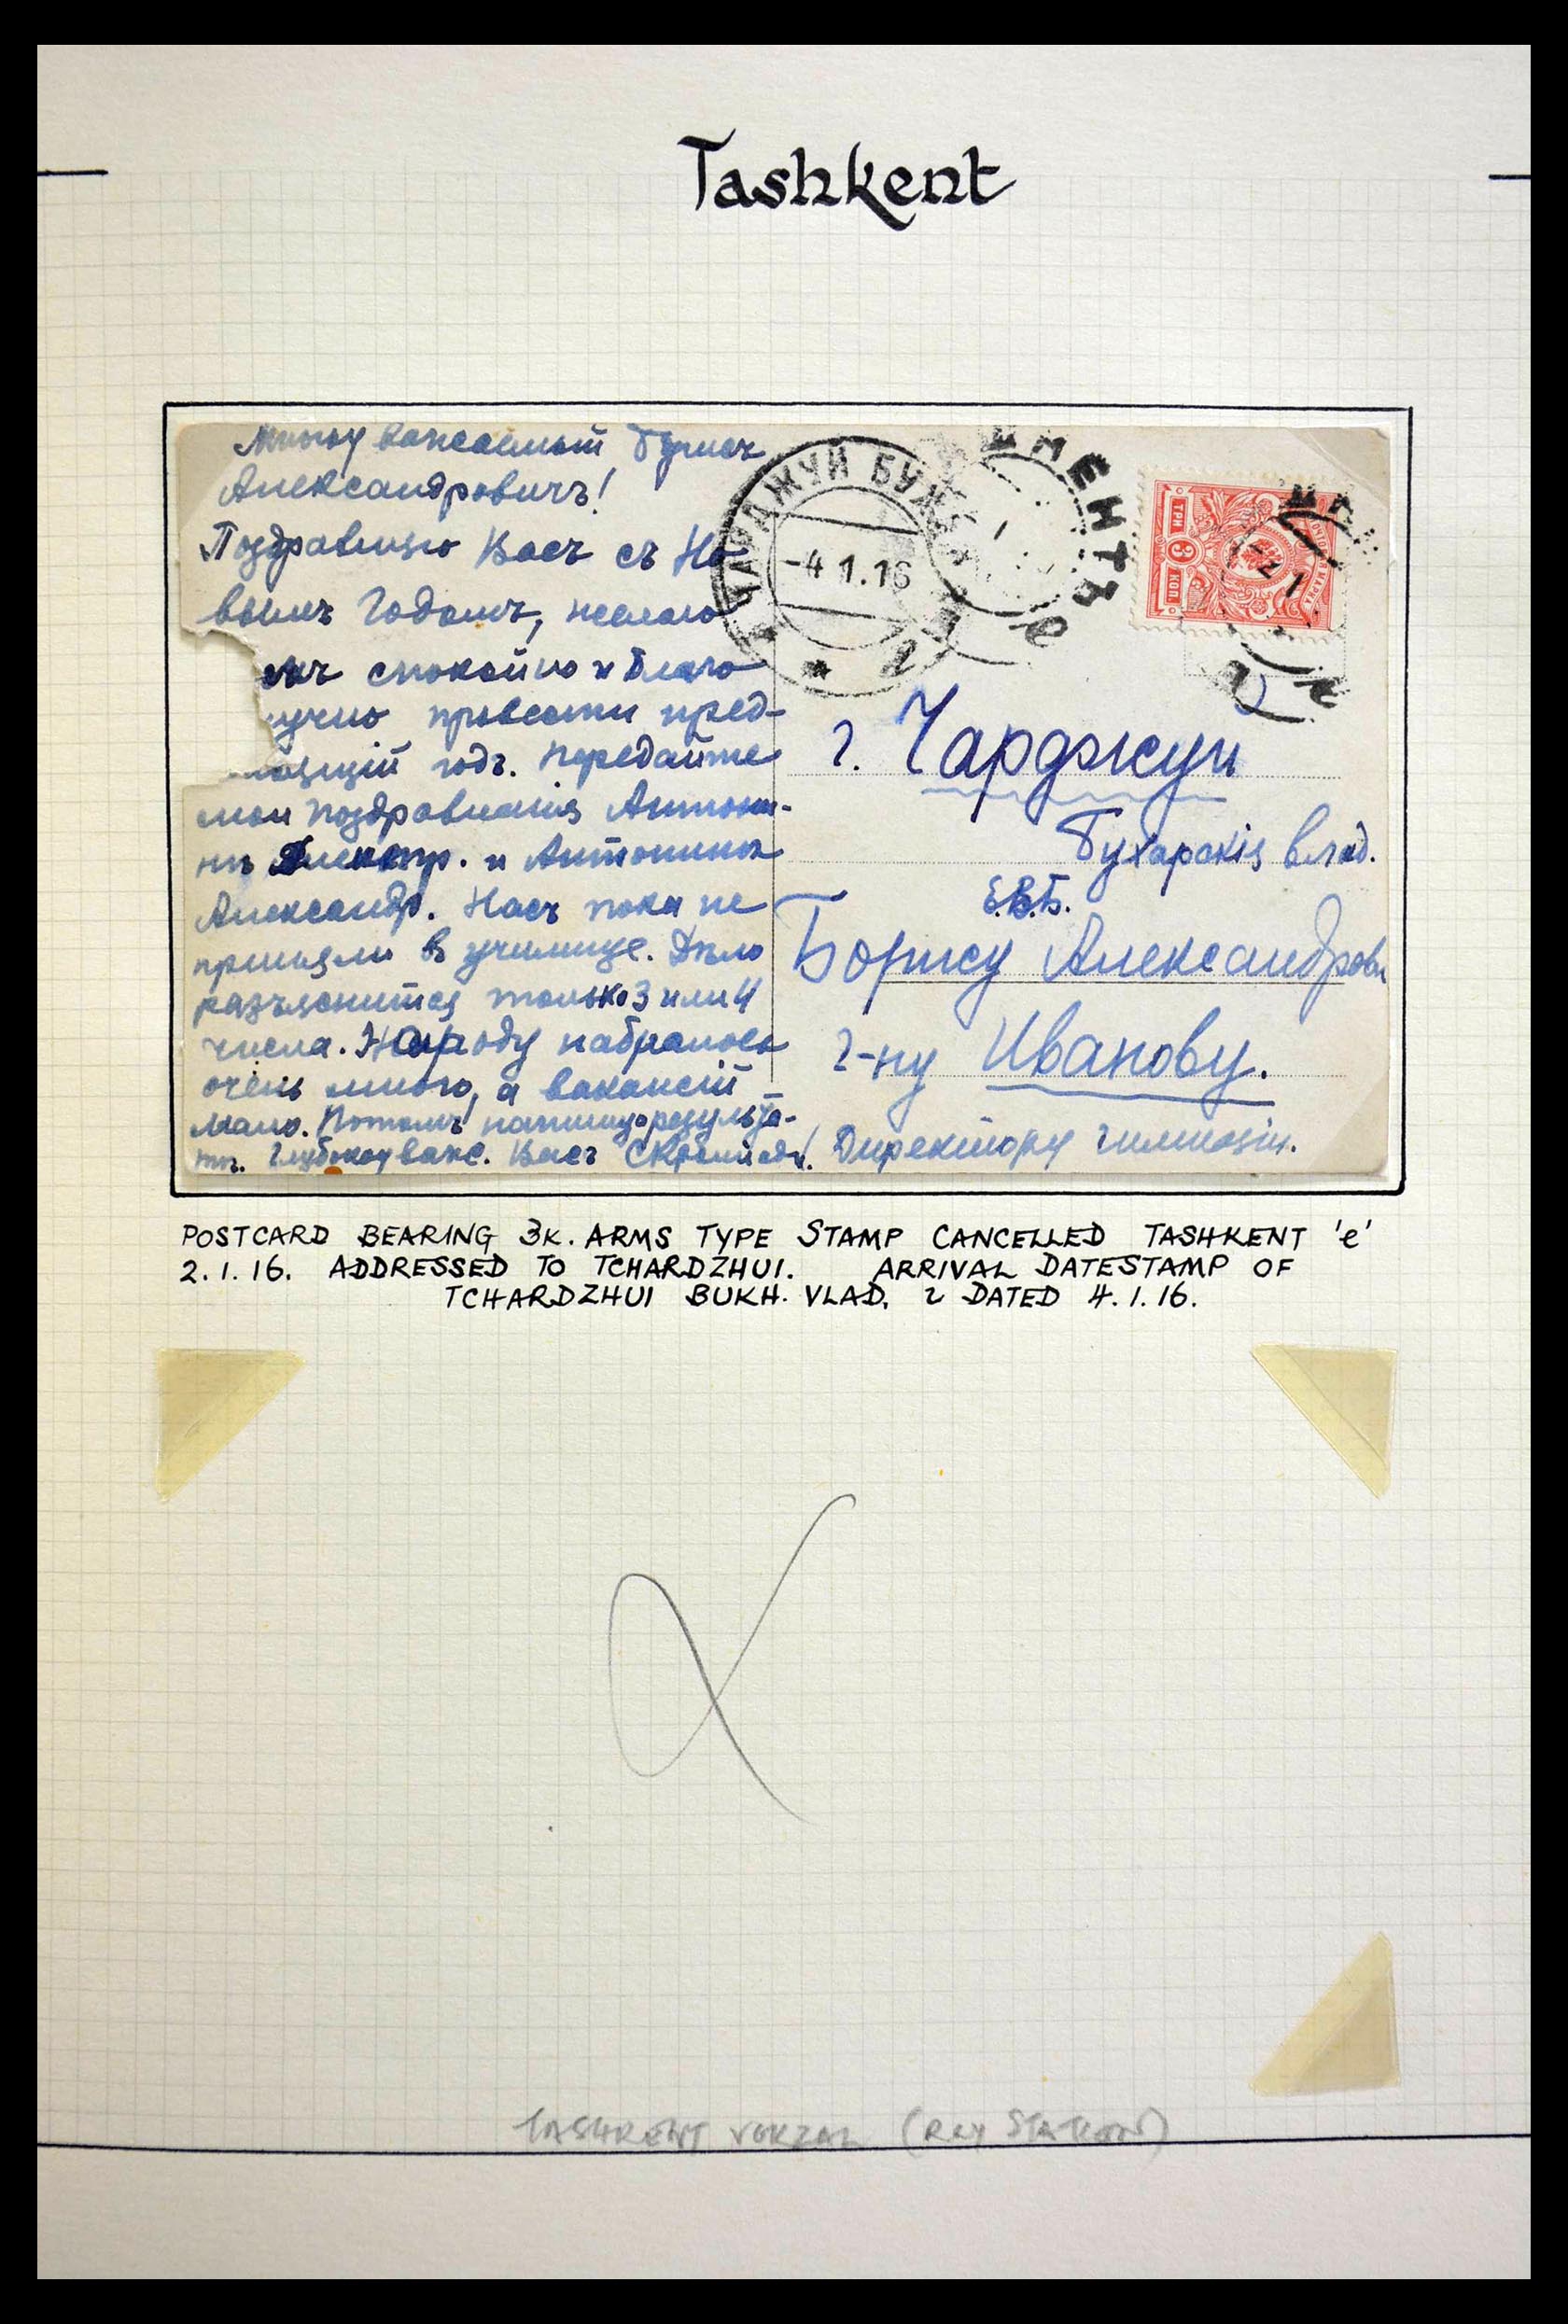 Tashkent
Многоуважаемый Борисъ
Александровичъ!
Поздравляю Васъ съ Но
вымъ Годомъ, желаю
спокойно и благо
учно провести пред-
ящій годъ. Передайте
мои поздравленія Антони-
нѣ Александр. и Антонинѣ
Александр. Насъ пока не
приняли в училище. Дѣло
разъяснится только 3 или 4
числа. Народу набралось
очень много, а вакансій
мало. Потомъ напишу о результа-
тѣ. Глубокоуваж. Васъ
ЧАРДЖУЙ БУХ
-4 1.16
ШКЕНТЪ
е
ТРИ 3 КОП.
-2 1
г. Чарджуи
Бухарскія влад.
Е.В.Б.
Борису Александрови
г-ну Иванову.
Директору гимназіи.
POSTCARD BEARING 3K. ARMS TYPE STAMP CANCELLED TASHKENT 'e'
2.1.16. ADDRESSED TO TCHARDZHUI. ARRIVAL DATESTAMP OF
TCHARDZHUI BUKH. VLAD. г DATED 4.1.16.
TASHKENT VOKZAL (RLY STATION)